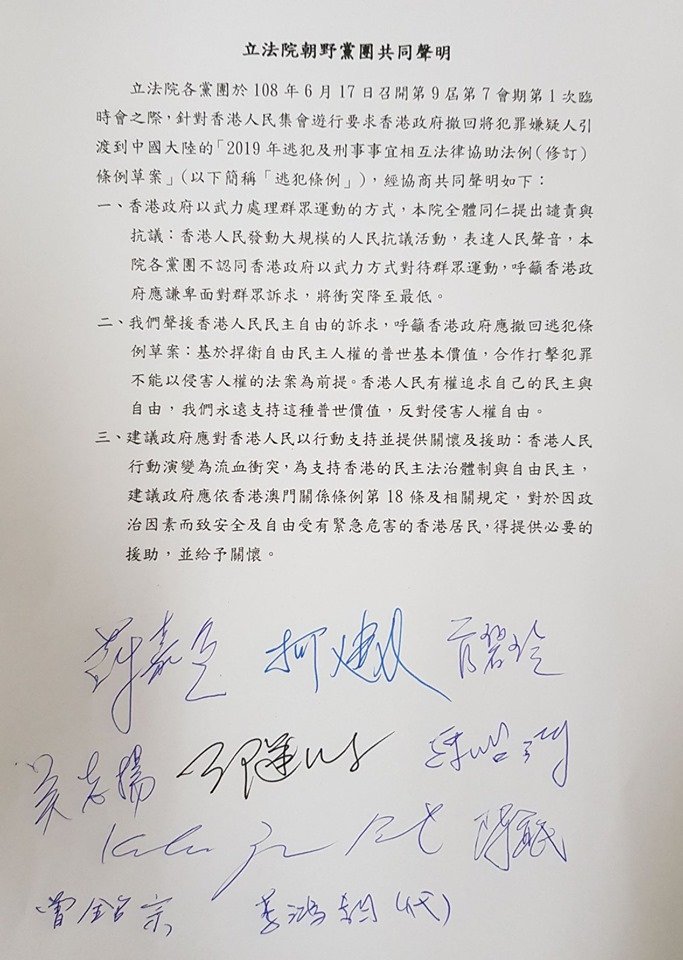 立法院朝野黨團共同聲明
立法院各黨團於108年6月17日召開第9屆第7會期第1次臨
時會之際，針對香港人民集會遊行要求香港政府撤回將犯罪嫌疑人引
渡到中國大陸的「2019年逃犯及刑事事宜相互法律協助法例(修訂)
條例草案」(以下簡稱「逃犯條例」)，經協商共同聲明如下：
一、香港政府以武力處理群眾運動的方式，本院全體同仁提出譴責與
抗議：香港人民發動大規模的人民抗議活動，表達人民聲音，本
院各黨團不認同香港政府以武力方式對待群眾運動，呼籲香港政
府應謙卑面對群眾訴求，將衝突降至最低。
二、我們聲援香港人民民主自由的訴求，呼籲香港政府應撤回逃犯條
例草案：基於捍衛自由民主人權的普世基本價值，合作打擊犯罪
不能以侵害人權的法案為前提。香港人民有權追求自己的民主與
自由，我們永遠支持這種普世價值，反對侵害人權自由。
三、建議政府應對香港人民以行動支持並提供關懷及援助：香港人民
行動演變為流血衝突，為支持香港的民主法治體制與自由民主，
建議政府應依香港澳門關係條例第18條及相關規定，對於因政
治因素而致安全及自由受有緊急危害的香港居民，得提供必要的
援助，並給予關懷。
柯建銘 管碧玲
吳志揚
曾銘宗 李鴻鈞(代)